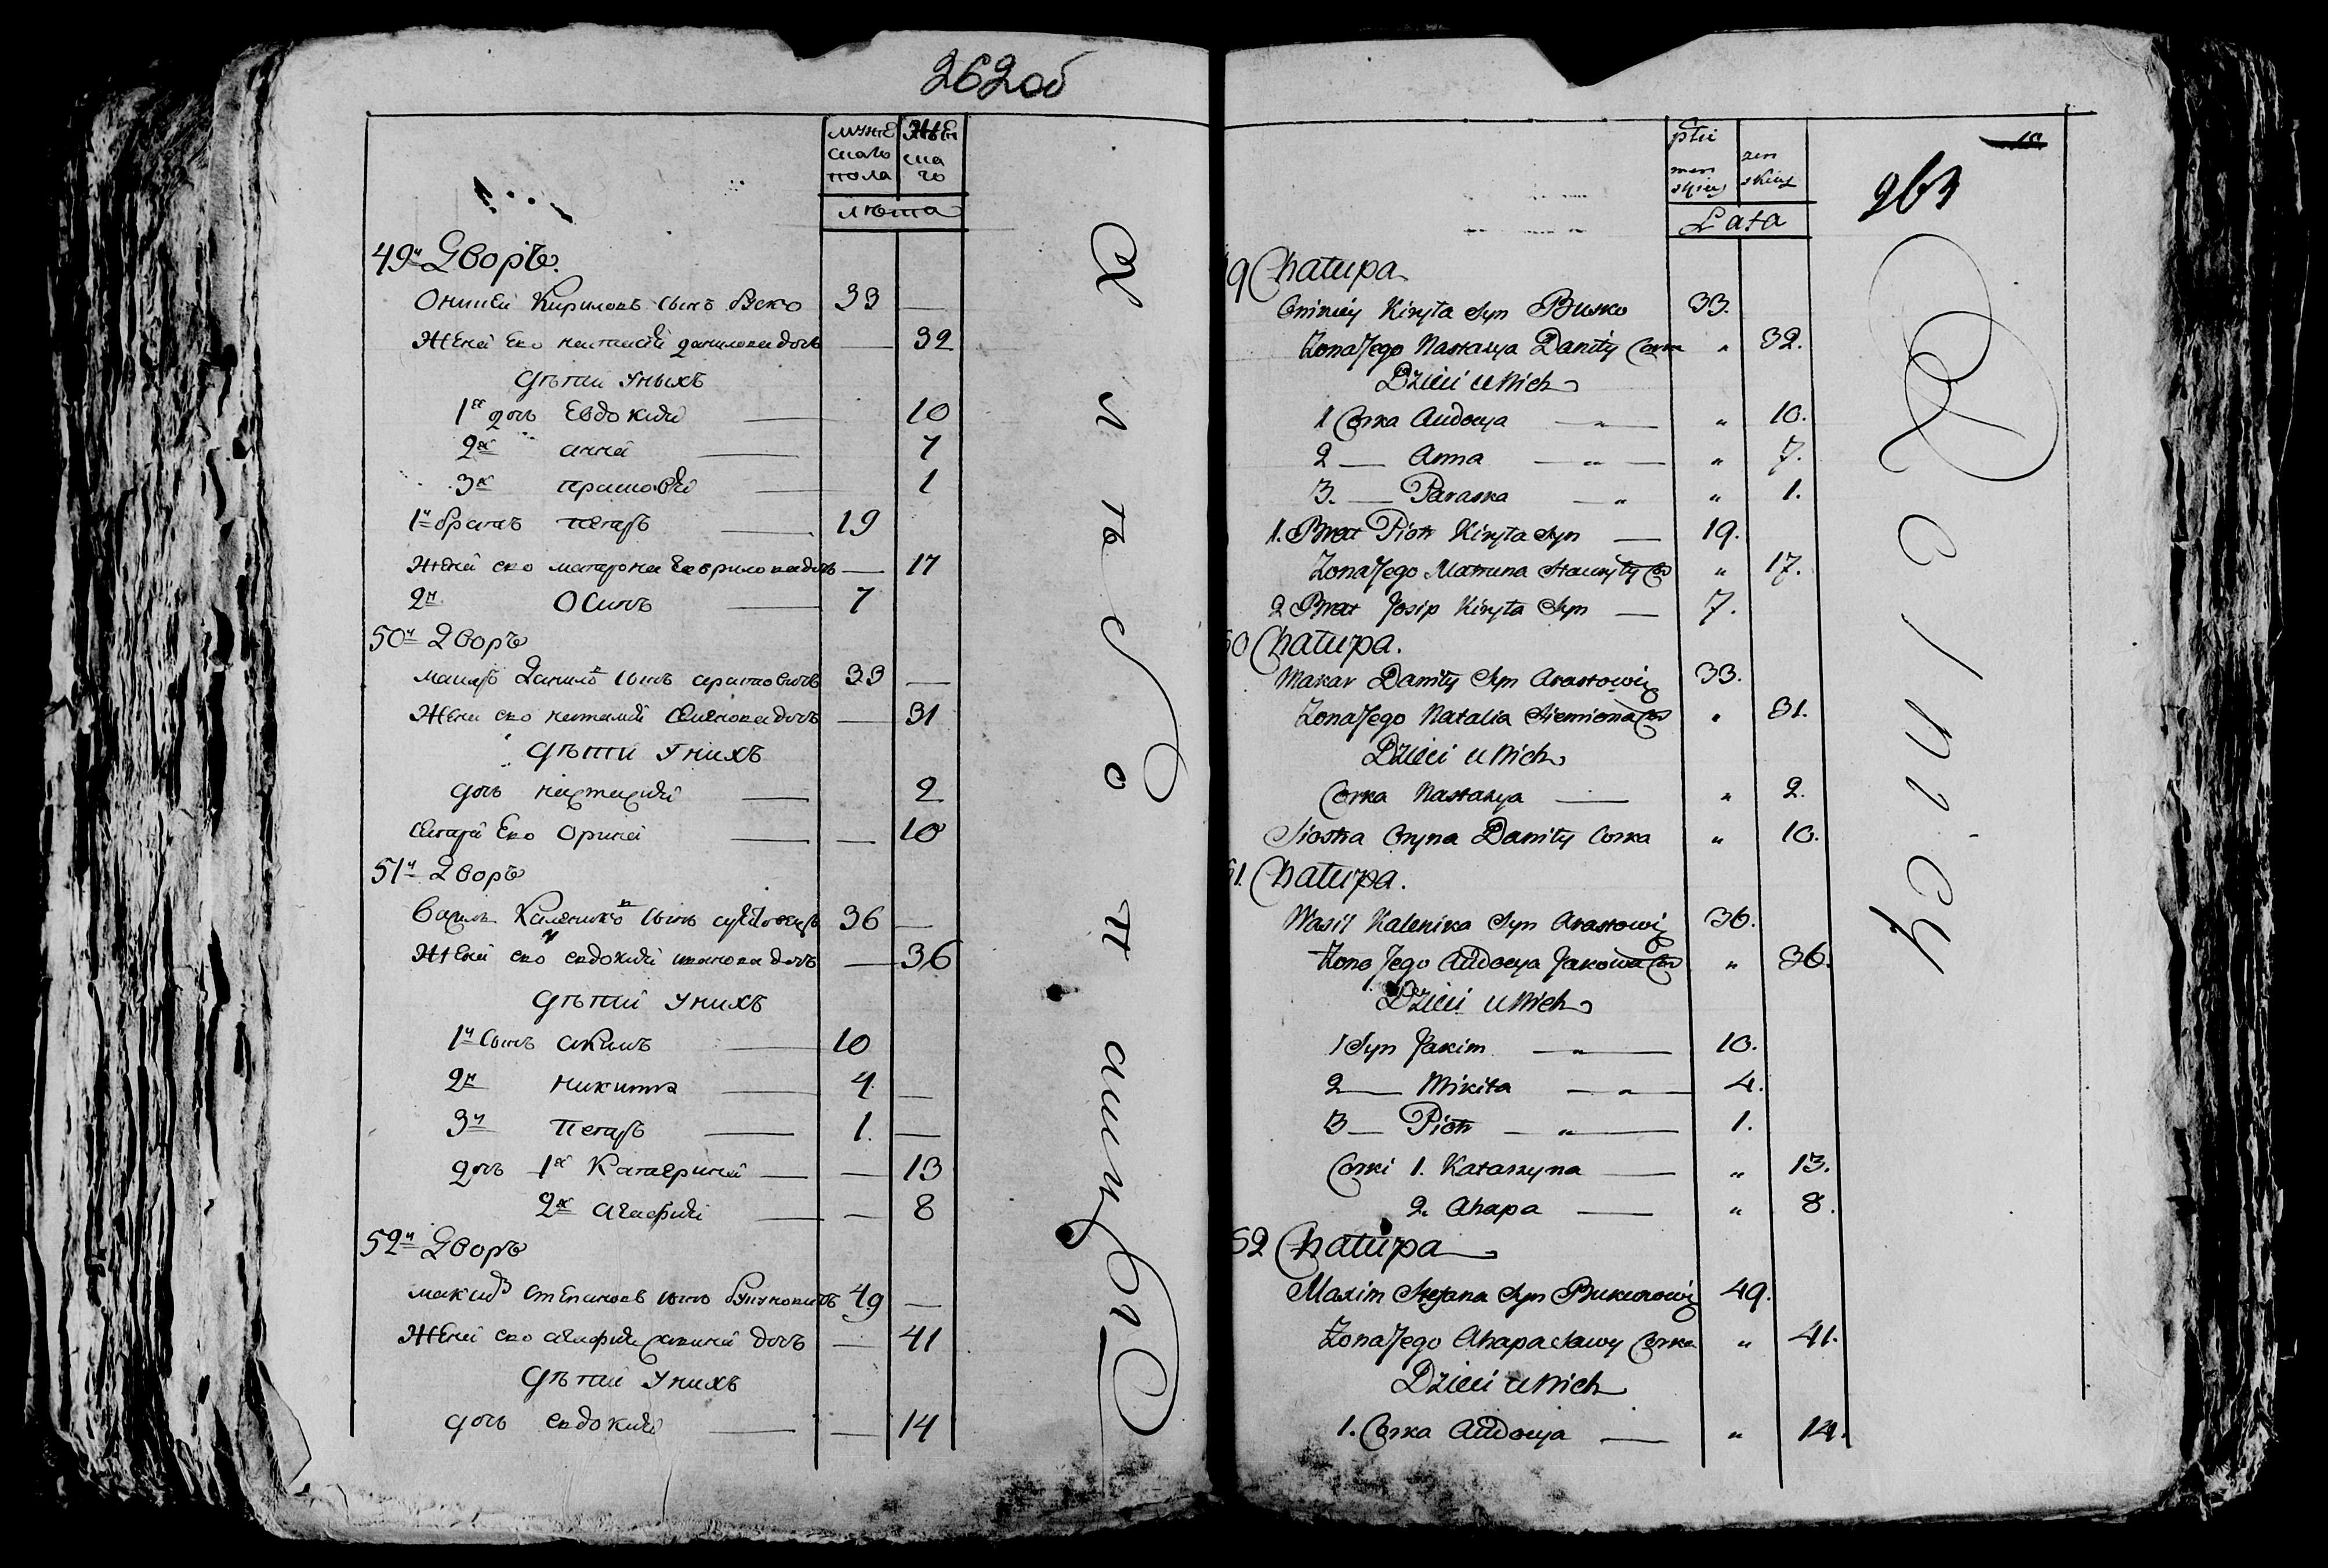 262об
мужескаго пола
женскаго
лѣта
49й Дворъ
Онисей Кириловъ сынъ Буско 33 —
Жена Ево настасія данилова дочь — 32
Дѣти у ныхъ
1я дочь Евдокия — 10
2я анна — 7
3я прасковя — 1
1й братъ петръ — 19
Жена ево матрона гаврилова дочь — 17
2й Осипъ — 7
50й Дворъ
макаръ Данилов сынъ 33 —
Жена ево наталия Семенова дочь — 31
Дѣти у нихъ
дочь настасия — 2
сестра Ево орина — — 10
51й Дворъ
Василь Калеников сынъ 36 —
Жена ево евдокия дочь — 36
Дѣти у нихъ
1й Сынъ акимъ — 10
2й никита — 4 —
3й петръ — 1. —
дочь 1я Катерина — — 13
2я агафия — — 8
52й Дворъ
максимъ Степановъ сынъ 49 —
Жена ево агафия савина дочь — 41
Дѣти у нихъ
дочь евдокия — — 14
płci
męn skiey
żen skiey
Lata
263
9 Chałupa
Onisiey Kiryła Syn Busko 33.
Żona Jego Nastazya Daniły Corka " 32.
Dzieci u Nich
1 Corka Audocya — " — " 10.
2 — Anna — " — " 7.
3. — Paraska — " " 1.
1. Brat Piotr Kiryła Syn — 19.
Żona Jego Matruna Hauryły Co " 17.
2 Brat Josip Kiryła Syn — 7.
50 Chałupa.
Makar Daniły Syn Arastowicz 33.
Żona Jego Natalia Siemiona Co " 31.
Dzieci u Nich
Corka Nastazya — " 2.
Siostra Oryna Daniły Corka " 10.
51. Chałupa.
Wasil Kalenika Syn Arastowicz 36.
Żona Jego Audocya Jakowa Co " 36.
Dzieci u Nich
1 Syn Jakim — " — 10.
2 — Mikita — " — 4.
3 — Piotr — " — 1.
Corki 1. Katarzyna — " 13.
2. Ahapa — " 8.
52 Chałupa
Maxim Stefana Syn 49.
Żona Jego Ahapa Sawy Corka " 41.
Dzieci u Nich
1. Corka Audocya — " 14.